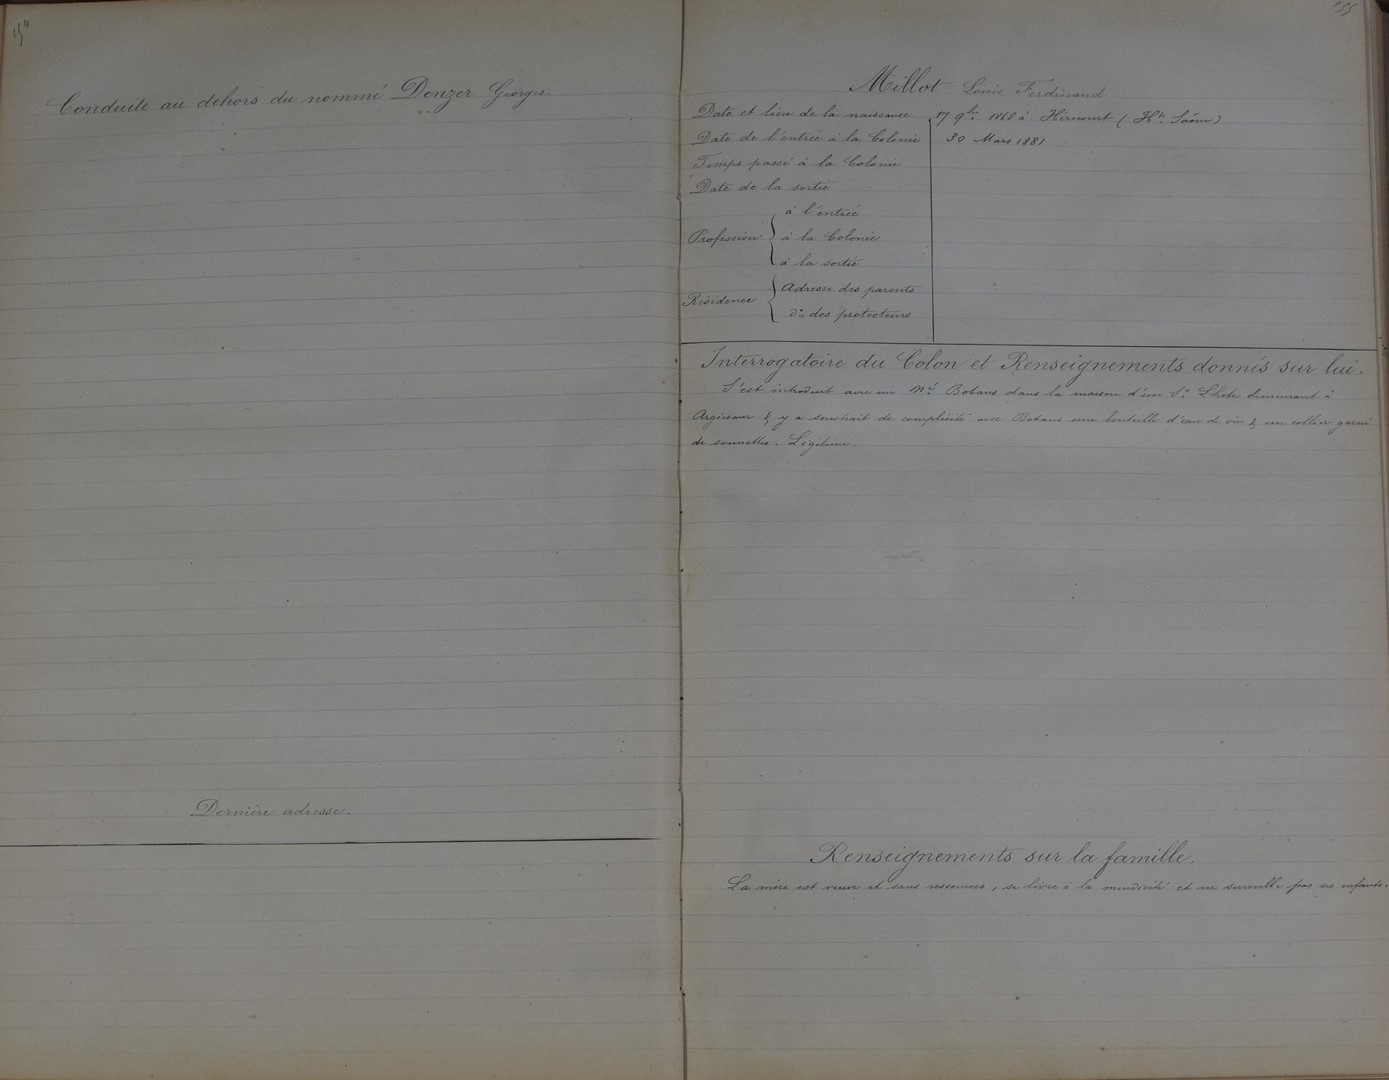 154
Conduite au dehors du nommé Denzer Georges.
Dernière adresse.
155
Millot Louis Ferdinand
Date et lieu de la naissance 17 9bre 1868 à Héricourt (Hte Saône)
Date de l'entrée à la Colonie 30 Mars 1881
Temps passé à la Colonie
Date de la sortie
Profession
à l'entrée
à la Colonie
à la sortie
Résidence
Adresse des parents
do des protecteurs
Interrogatoire du Colon et Renseignements donnés sur lui.
S'est introduit avec un né Botans dans la maison d'un Sr Lhote demeurant à
& y a soustrait de complicité avec Botans une bouteille d'eau de vie & un collier garni
de sonnettes. Légitime.
Renseignements sur la famille.
La mère est veuve et sans ressources, se livre à la mendicité et ne surveille pas ses enfants.